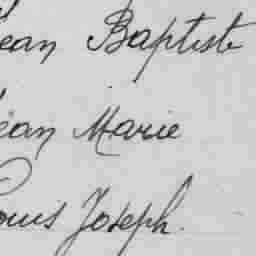 Jean Baptiste
Jean Marie
Louis Joseph.